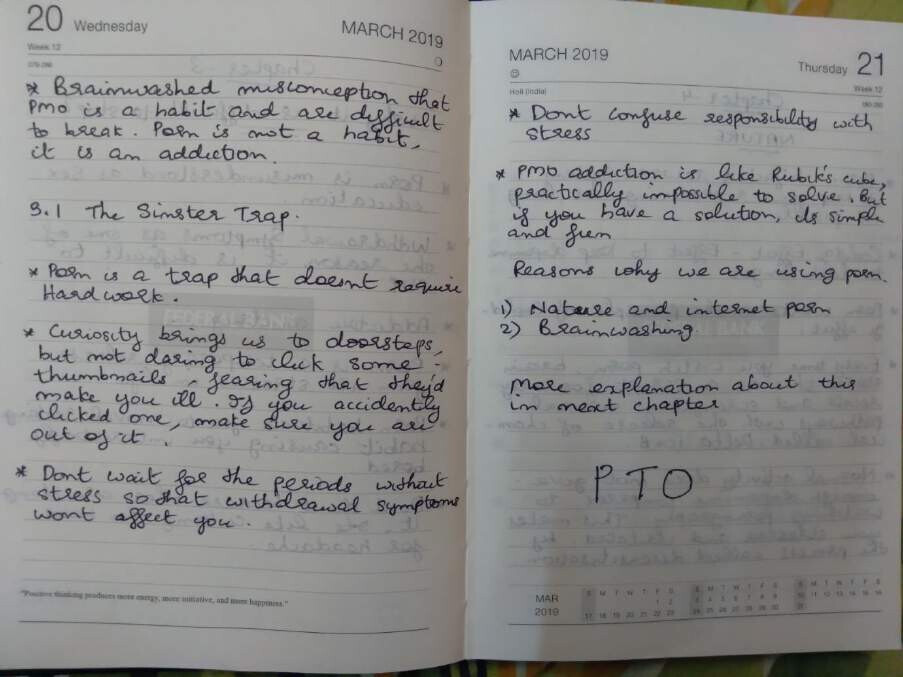 20 Wednesday
MARCH 2019
Week 12
079-286
* Brainwashed misconception that
PMO is a habit and are difficult
to break. Porn is not a habit,
it is an addiction.
3.1 The Sinster Trap.
* Porn is a trap that doesnt require
Hardwork.
* Curiosity brings us to doorsteps,
but not daring to click some
thumbnails, fearing that they'd
make you ill. If you accidently
clicked one, make sure you are
out of it.
* Dont wait for the periods without
stress so that withdrawal symptoms
wont affect you.
"Positive thinking produces more energy, more initiative, and more happiness."
MARCH 2019
Thursday 21
Holi (India)
Week 12
080-285
* Dont confuse responsibility with
stress
* PMO addiction is like Rubik's cube,
practically impossible to solve. But
if you have a solution, its simple
and fun
Reasons why we are using porn.
1) Nature and internet porn
2) Brainwashing
More explanation about this
in next chapter
PTO
MAR
2019
S M T W T F S
1 2
17 18 19 20 21 22 23
S M T W T F S
3 4 5 6 7 8 9
24 25 26 27 28 29 30
S M T W T F S
10 11 12 13 14 15 16
31